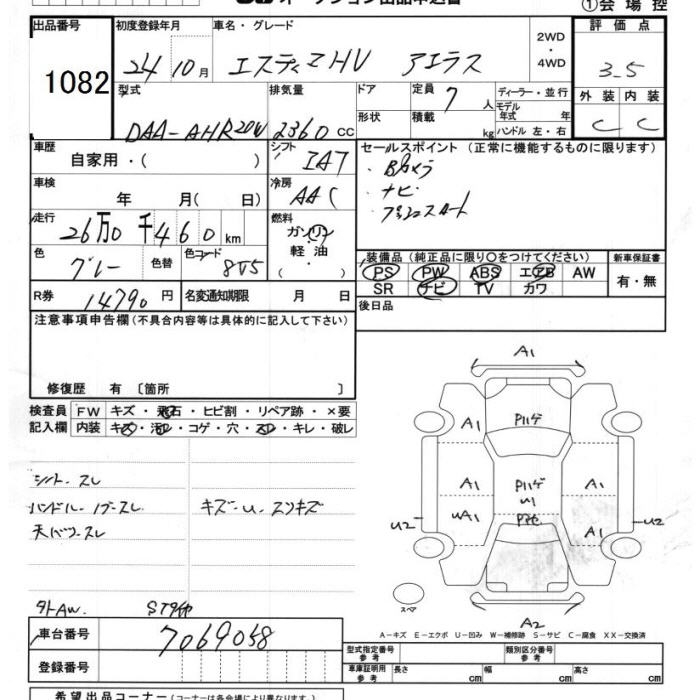 オークション出品申込書
①会場控
出品番号 1082
初度登録年月 24 10月
車名・グレード エスティマHV アエラス
2WD・4WD
評価点 3.5
型式 DAA-AHR20W
排気量 2360 CC
ドア
形状
定員 7 人
積載 kg
ディーラー・並行
モデル年式 年
ハンドル 左・右
外装 C
内装 C
車歴 自家用・( )
シフト IAT
セールスポイント (正常に機能するものに限ります)
・Bカメラ
・ナビ
・プッシュスタート
車検 年 月( 日)
冷房 AAC
走行 26万0千460km
燃料 ガソリン
軽油
・( )
色 グレー
色替
色コード 8V5
装備品 (純正品に限り○をつけてください)
PS PW ABS エアB AW
SR ナビ TV カワ
新車保証書
有・無
R券 14790 円
名変通知期限 月 日
後日品
注意事項申告欄 (不具合内容等は具体的に記入して下さい)
修復歴 有 〔箇所 〕
検査員記入欄
FW キズ・飛石・ヒビ割・リペア跡・×要
内装 キズ・汚れ・コゲ・穴・スレ・キレ・破レ
シート スレ
ハンドル・ノブ-スレ
天バリ-スレ
キズ-U・スリキズ
タトAW. STタイヤ
A1
A1
A1
A1
UA1
A1
U2
U2
Pハゲ
Pハゲ
U1
A2
スペア
A-キズ E-エクボ U-凹み W-補修跡 S-サビ C-腐食 XX-交換済
車台番号 7069058
登録番号
型式指定番号 参考
類別区分番号 参考
車庫証明用 参考 長さ cm 幅 cm 高さ cm
希望出品コーナー (コーナーは各会場により異なります)